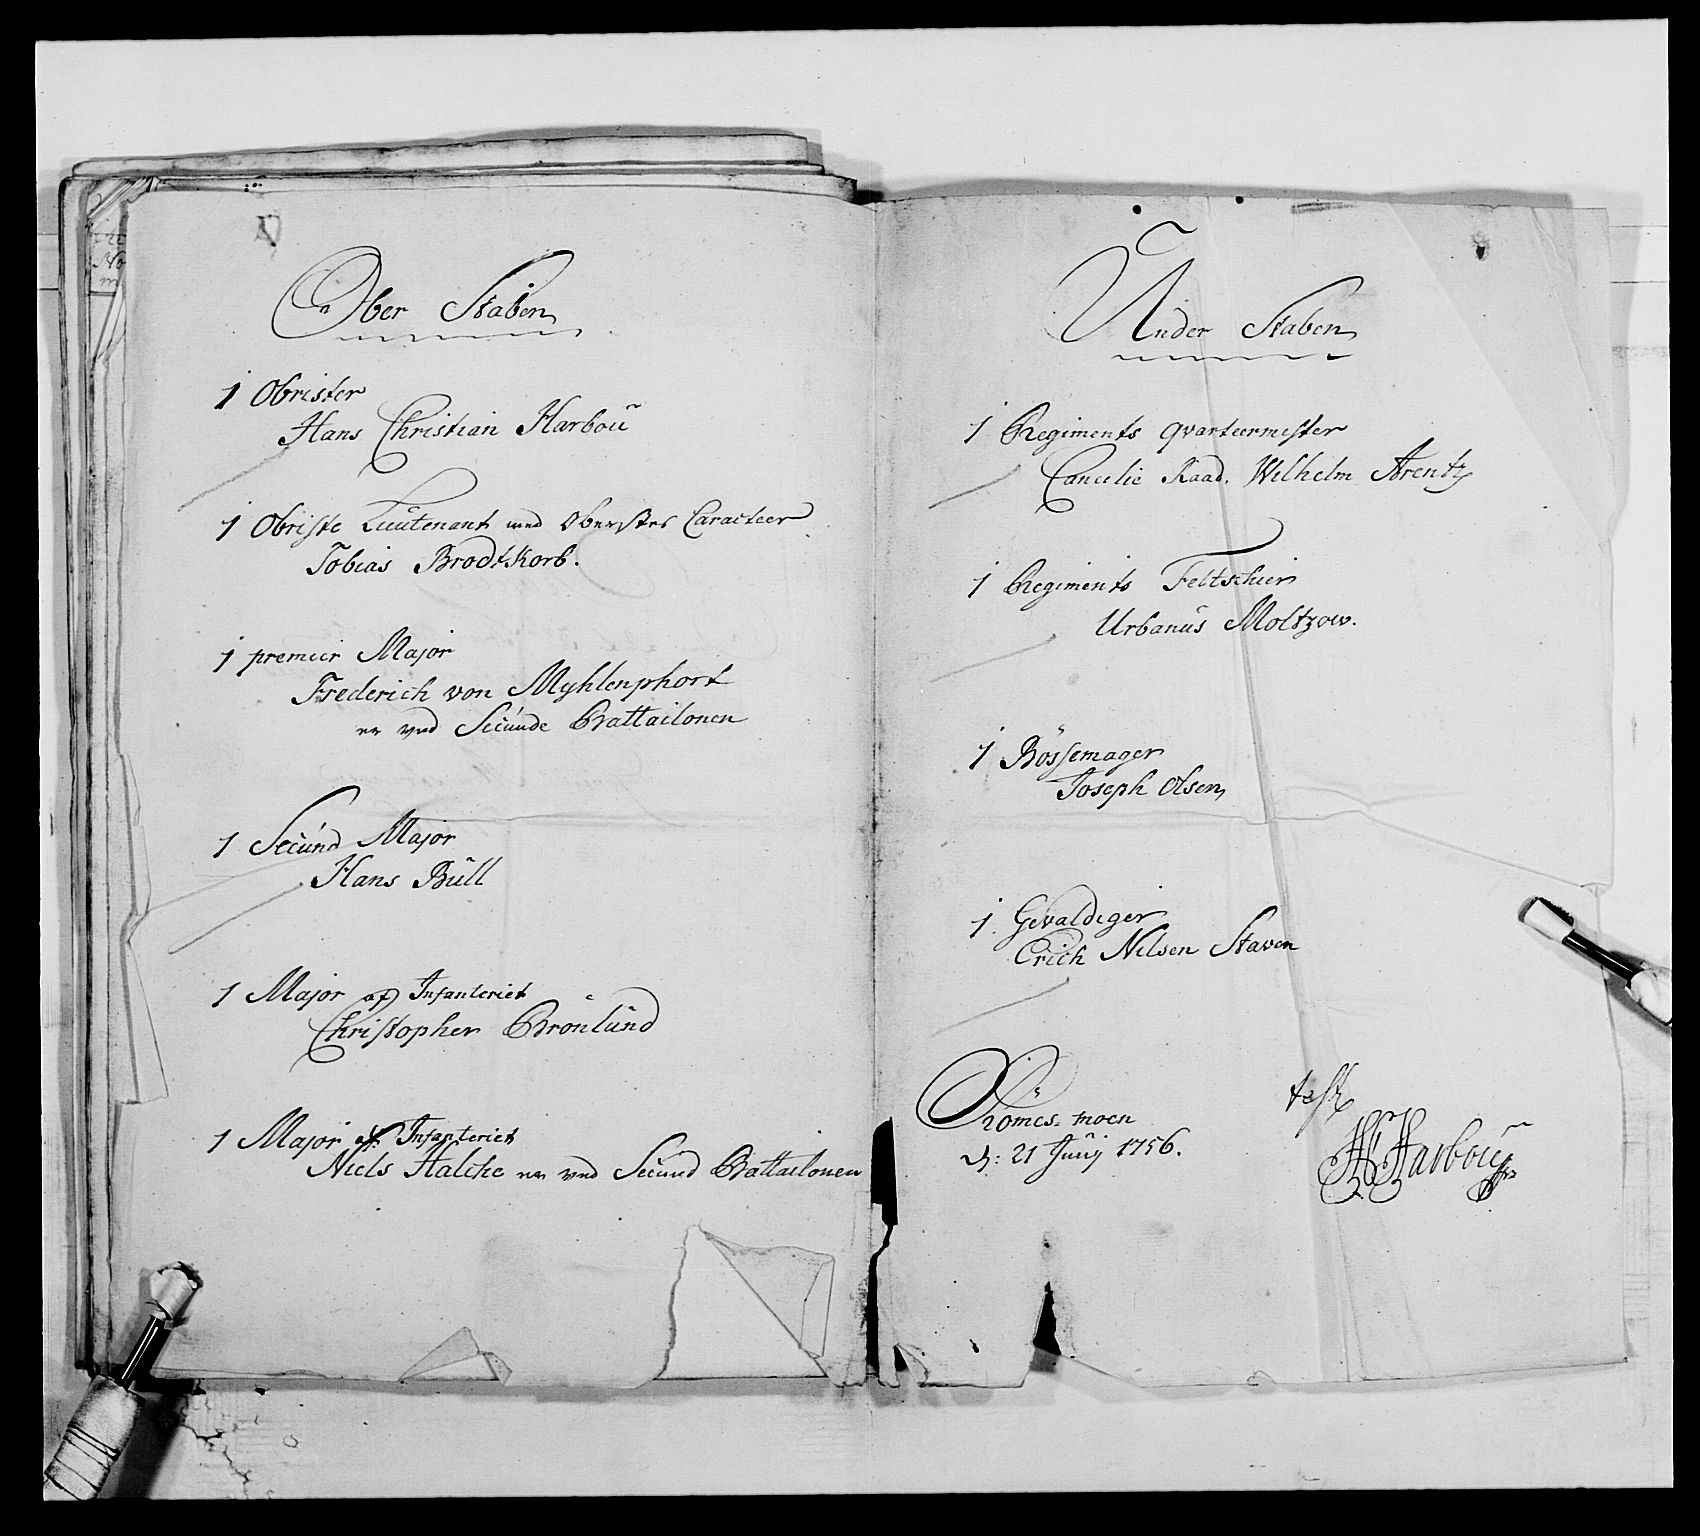 Ober Staben
1 Obrister
Hans Christian Harboũ
1 Obriste Lieũtenant med Oberstes Caracteer
Tobias Brodtkorb.
1 premier Major
Frederich von Myhlenphort
er ved Secũnde Battailonen
1 Secũnd Major
Hans Bũll
1 Major af Infanteriet
Christopher Brönlũnd
1 Major af Infanteriet
Niels Halche er ved Secũnd Battailonen
Ũnder Staben
1 Regiments qvarteermester
Cancelie Raad. Wilhelm Arentz
1 Regiments Feltschier
Urbanũs Moltzow.
1 Bössemager
Joseph Olsen
1 Gevaldiger
Erich Nilsen Staven
Römes-moen
d: 21 Jũnij 1756.
test
HCHarboũ